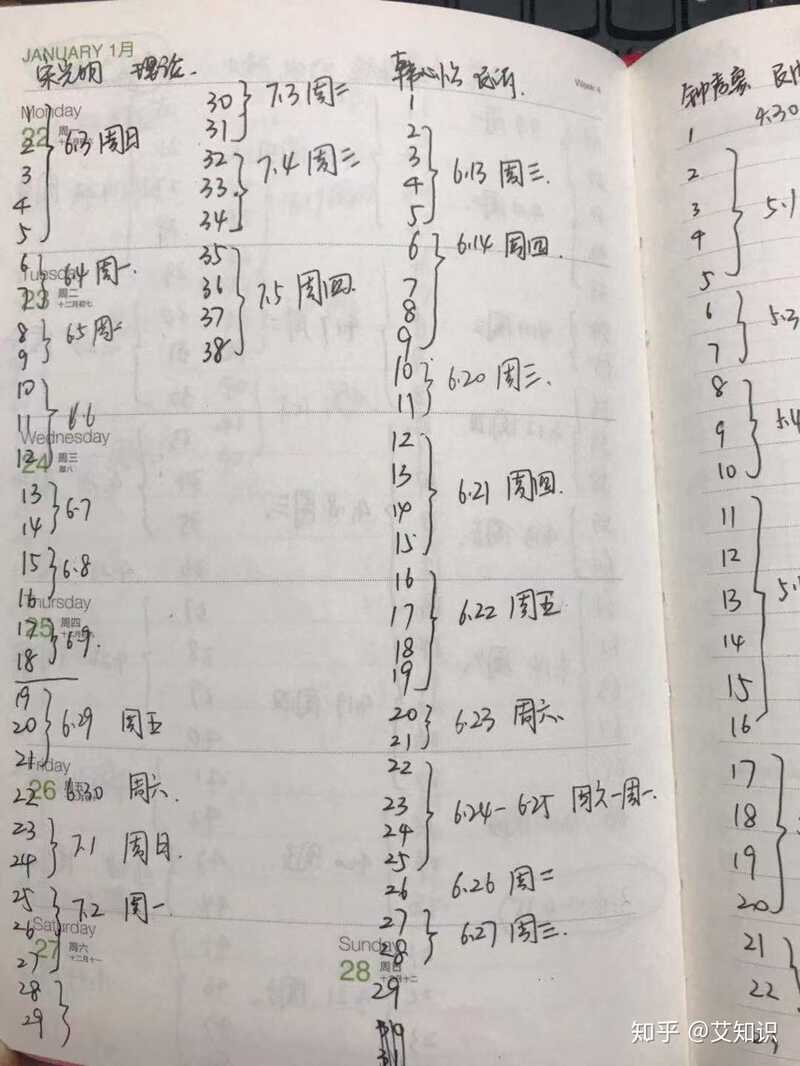 JANUARY 1月
宋光明 理论.
Monday
22 周一
1
2
3
4
5
6.3 周日
6
7
6.4 周一.
Tuesday
23 周二
十二月初七
8
9
6.5 周二
10
11
12
6.6
Wednesday
24 周三
腊八
13
14
6.7
15
16
6.8
Thursday
25 周四
17
18
6.9.
19
20
21
6.29 周五
Friday
26
22 6.30 周六.
23
24
7.1 周日.
25
26
27
7.2 周一
Saturday
27 周六
十二月十一
28
29
30
31
7.3 周二
32
33
34
7.4 周三
35
36
37
38
7.5 周四.
Week 4
1
2
3
4
5
6.13 周三.
6
7
8
9
6.14 周四.
10
11
6.20 周三.
12
13
14
15
6.21 周四.
16
17
18
19
6.22 周五
20
21
6.23 周六.
22
23
24
25
6.24-6.25 周六-周一.
26 6.26 周二
27
28
6.27 周三.
Sunday
28 周日
十二月十二
29
30
31
1 4.30
2
3
4
5
5.1
6
7
5.3
8
9
10
5.4
11
12
13
14
15
16
5.
17
18
19
20
21
22
23
知乎 @艾知识